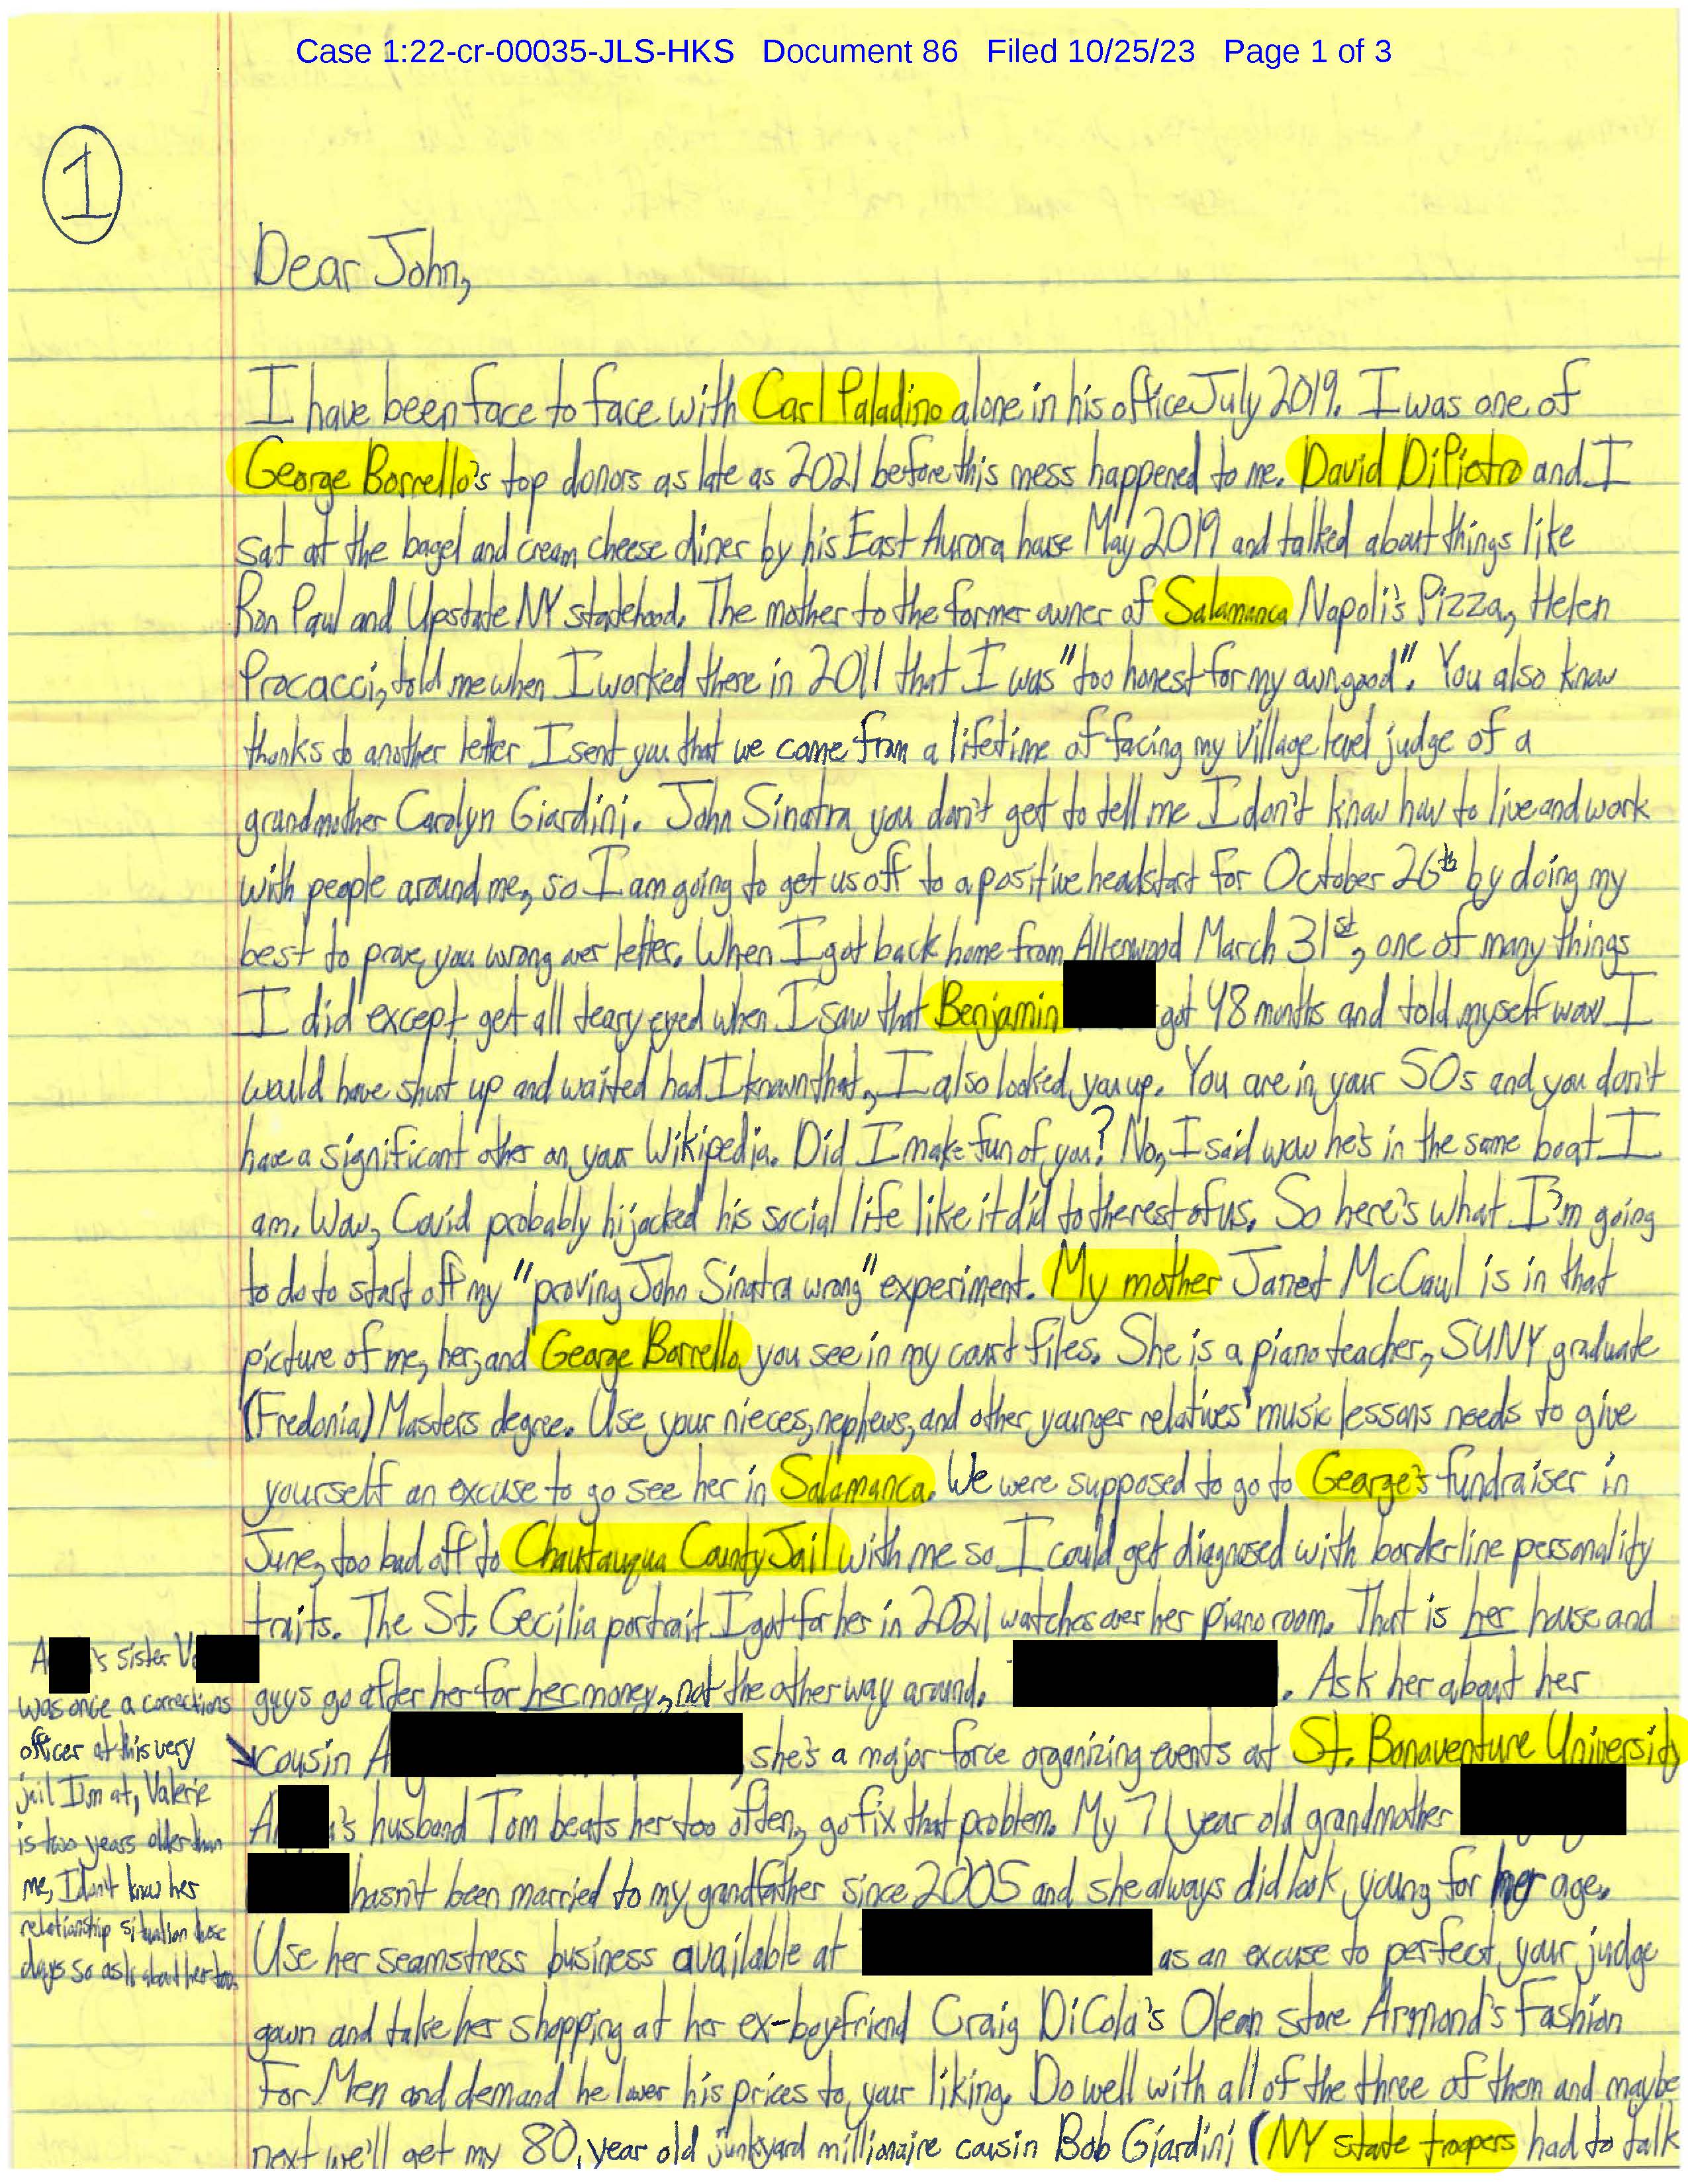 Case 1:22-cr-00035-JLS-HKS Document 86 Filed 10/25/23 Page 1 of 3
1
Dear John,
I have been face to face with Carl Paladino alone in his office July 2019. I was one of
George Borrello's top donors as late as 2021 before this mess happened to me. David DiPietro and I
sat at the bagel and cream cheese diner by his East Aurora house May 2019 and talked about things like
Ron Paul and Upstate NY statehood. The mother to the former owner of Salamanca Napoli's Pizza, Helen
Procacci, told me when I worked there in 2011 that I was "too honest for my own good". You also know
thanks to another letter I sent you that we come from a lifetime of facing my village level judge of a
grandmother Carolyn Giardini. John Sinatra you don't get to tell me I don't know how to live and work
with people around me, so I am going to get us off to a positive headstart for October 26th by doing my
best to prove you wrong over letter. When I got back home from Allenwood March 31st, one of many things
I did except get all teary eyed when I saw that Benjamin got 48 months and told myself wow I
would have shut up and waited had I known that, I also looked you up. You are in your 50s and you don't
have a significant other on your Wikipedia. Did I make fun of you? No, I said wow he's in the same boat I
am. Wow, Covid probably hijacked his social life like it did to the rest of us. So here's what I'm going
to do to start off my "proving John Sinatra wrong" experiment. My mother Janet McCaul is in that
picture of me, her, and George Borrello you see in my court files. She is a piano teacher, SUNY graduate
(Fredonia) Masters degree. Use your nieces, nephews, and other younger relatives' music lessons needs to give
yourself an excuse to go see her in Salamanca. We were supposed to go to George's fundraiser in
June, too bad off to Chautauqua County Jail with me so I could get diagnosed with borderline personality
traits. The St. Cecilia portrait I got for her in 2021 watches over her piano room. That is her house and
guys go after her for her money, not the other way around. . Ask her about her
cousin A , she's a major force organizing events at St. Bonaventure University
A 's husband Tom beats her too often, go fix that problem. My 71 year old grandmother
hasn't been married to my grandfather since 2005 and she always did look young for her age.
Use her seamstress business available at as an excuse to perfect your judge
gown and take her shopping at her ex-boyfriend Craig DiCola's Olean store Armond's Fashion
For Men and demand he lower his prices to your liking. Do well with all of the three of them and maybe
next we'll get my 80 year old junkyard millionaire cousin Bob Giardini (NY state troopers had to talk
A 's sister V
was once a corrections
officer at this very
jail I'm at, Valerie
is two years older than
me, I don't know her
relationship situation these
days so ask about her too.